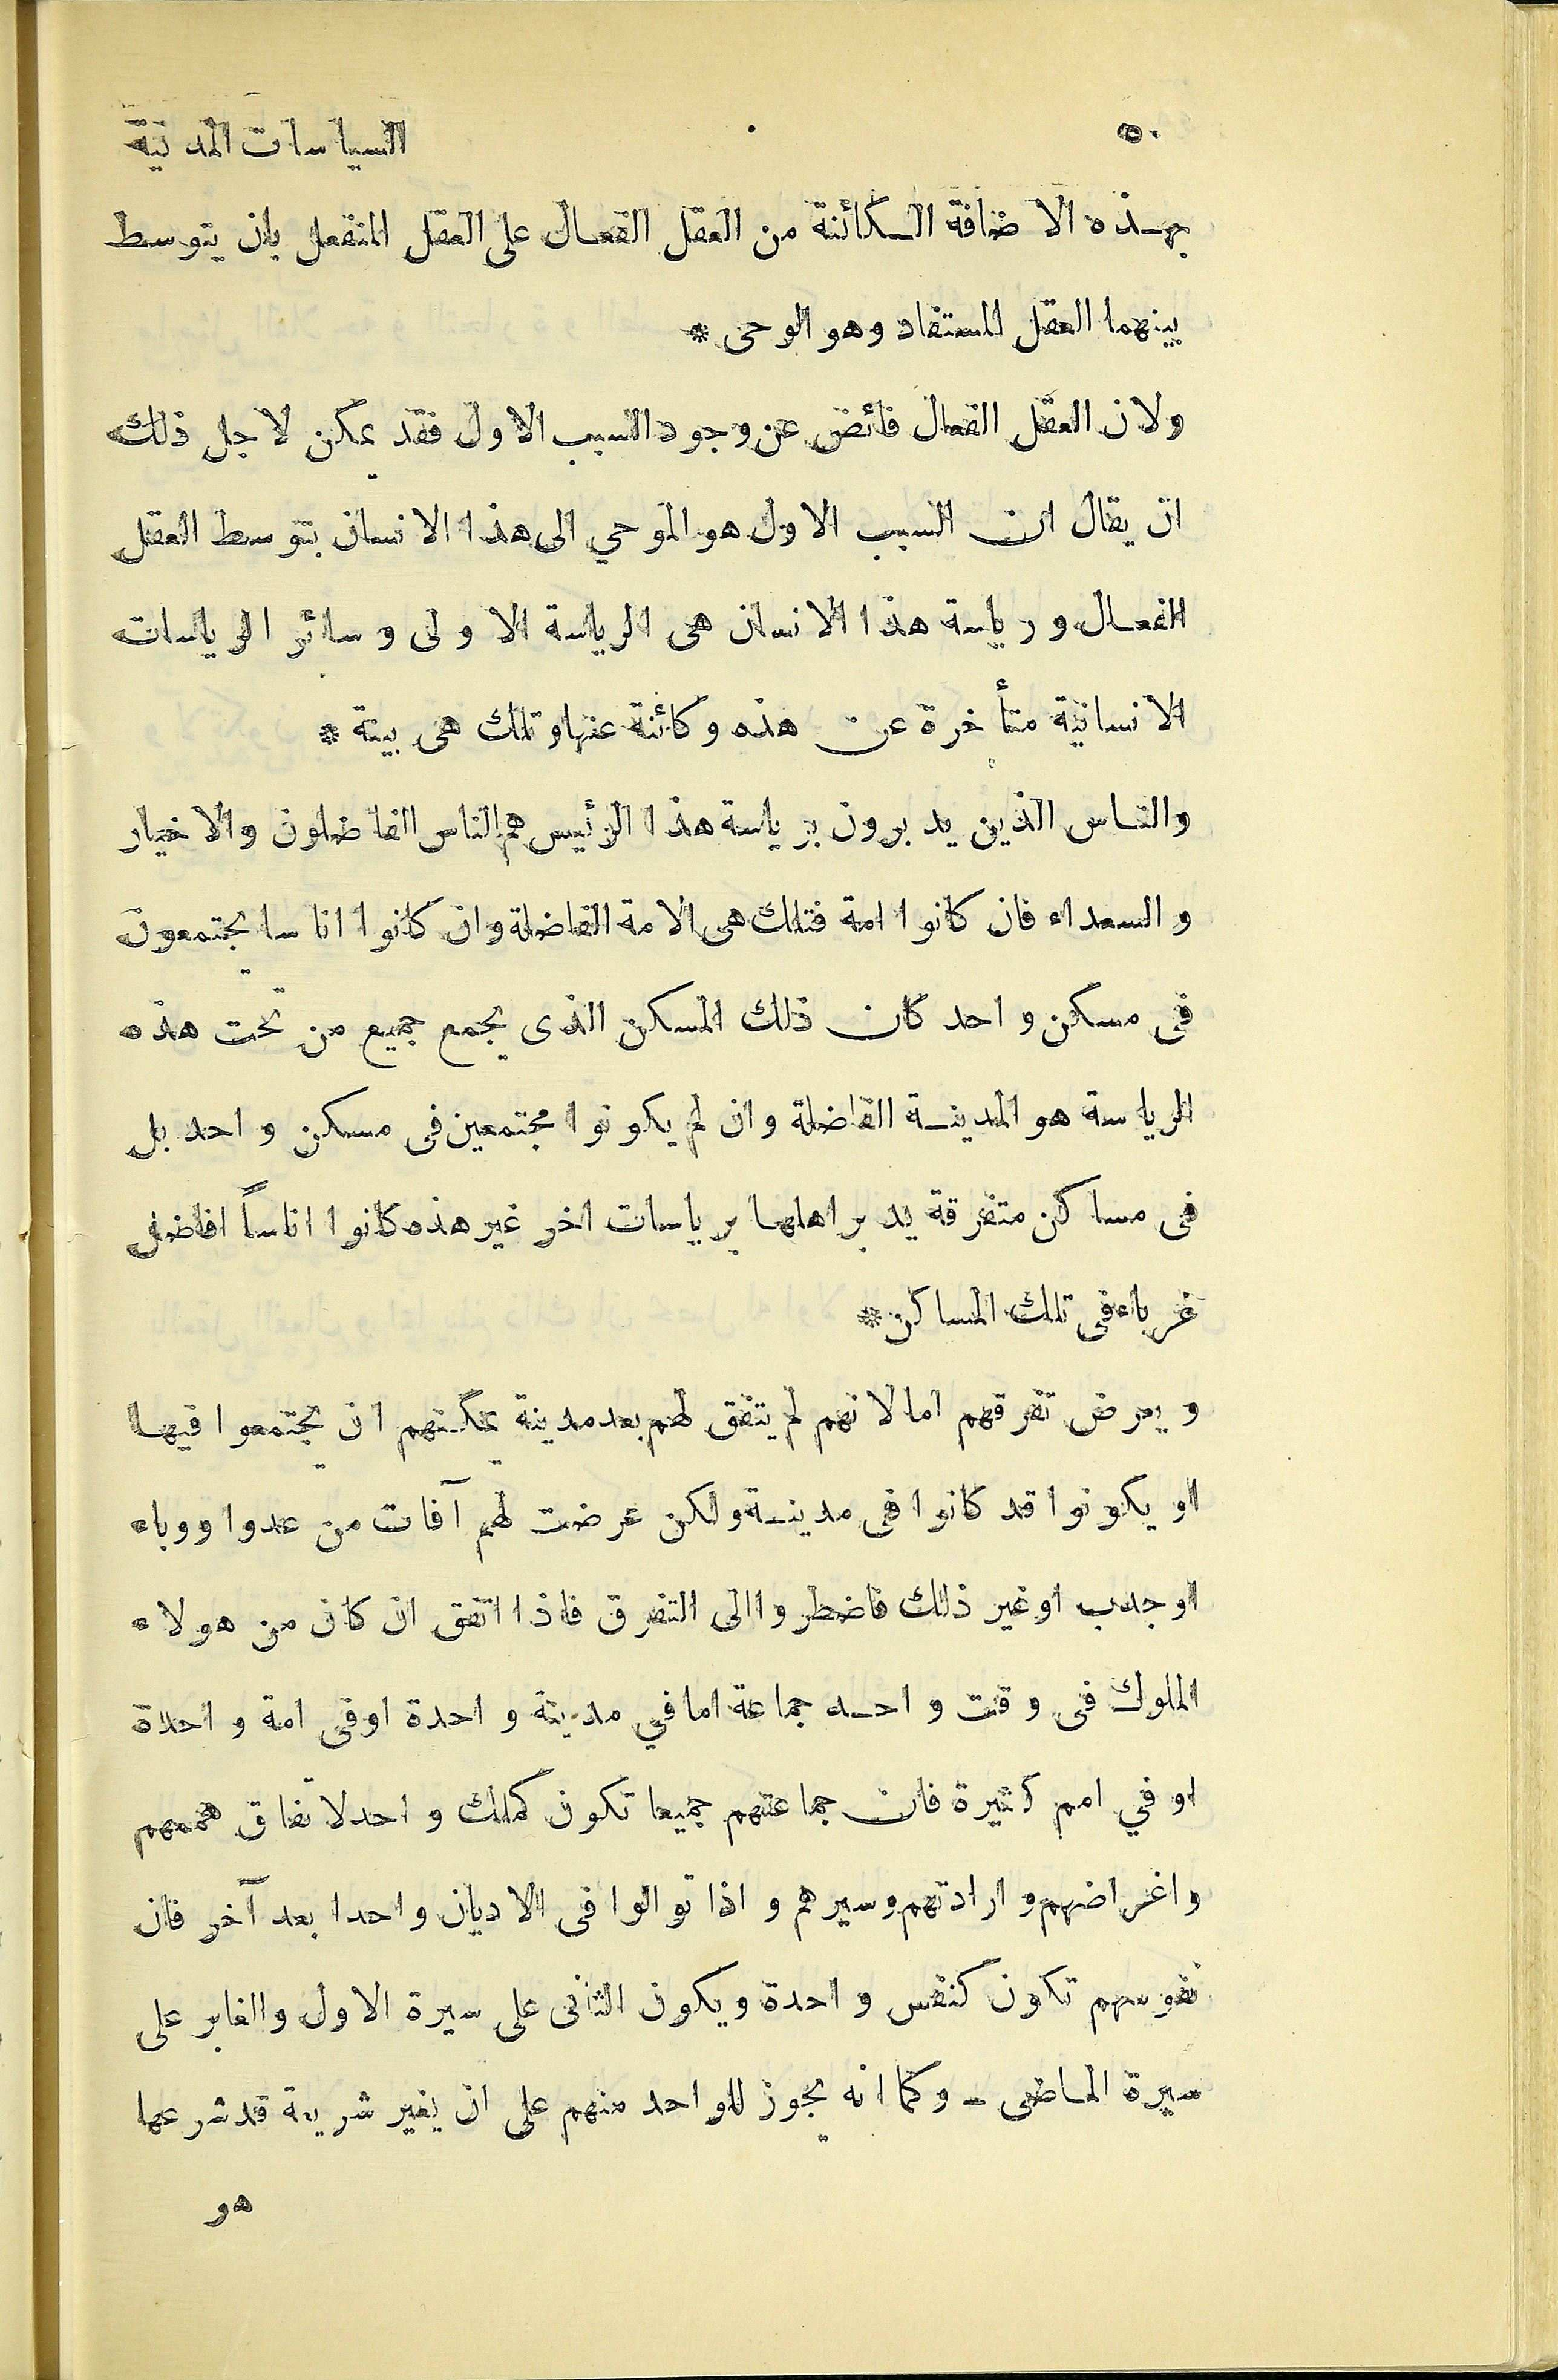 ٥٠ السياسات المدنية
بهذه الاضافة الكائنة من العقل الفعال على العقل المنفعل بان يتوسط
بينهما العقل المستفاد وهو الوحى *
ولان العقل الفعال فائض عن وجود السبب الاول فقد يمكن لاجل ذلك
ان يقال ان السبب الاول هو الموحي الى هذا الانسان بتوسط العقل
الفعال ورياسة هذا الانسان هى الرياسة الاولى وسائر الرياسات
الانسانية متأخرة عن هذه وكائنة عنها وتلك هى بينة *
والناس الذين يدبرون برياسة هذا الرئيس هم الناس الفاضلون والاخيار
والسعداء فان كانوا امة فتلك هى الامة الفاضلة وان كانوا اناسا يجتمعون
فى مسكن واحد كان ذلك المسكن الذى يجمع جميع من تحت هذه
الرياسة هو المدينة الفاضلة وان لم يكونوا مجتمعين فى مسكن واحد بل
فى مساكن متفرقة يدبر اهلها برياسات اخر غير هذه كانوا اناساً افاضل
غرباء فى تلك المساكن *
ويعرض تفرقهم اما لانهم لم يتفق لهم بعد مدينة يمكنهم ان يجتمعوا فيها
او يكونوا قد كانوا فى مدينة ولكن عرضت لهم آفات من عدو او وباء
او جدب او غير ذلك فاضطروا الى التفرق فاذا اتفق ان كان من هولاء
الملوك فى وقت واحد جماعة اما في مدينة واحدة اوفى امة واحدة
او في امم كثيرة فان جماعتهم جميعا تكون كملك واحد لاتفاق هممهم
واغراضهم وارادتهم وسيرهم واذا توالوا فى الاديان واحدا بعد آخر فان
نفوسهم تكون كنفس واحدة ويكون الثانى على سيرة الاول والغابر على
سيرة الماضى - وكما انه يجوز للواحد منهم على ان يغير شريعة قد شرعها
هو